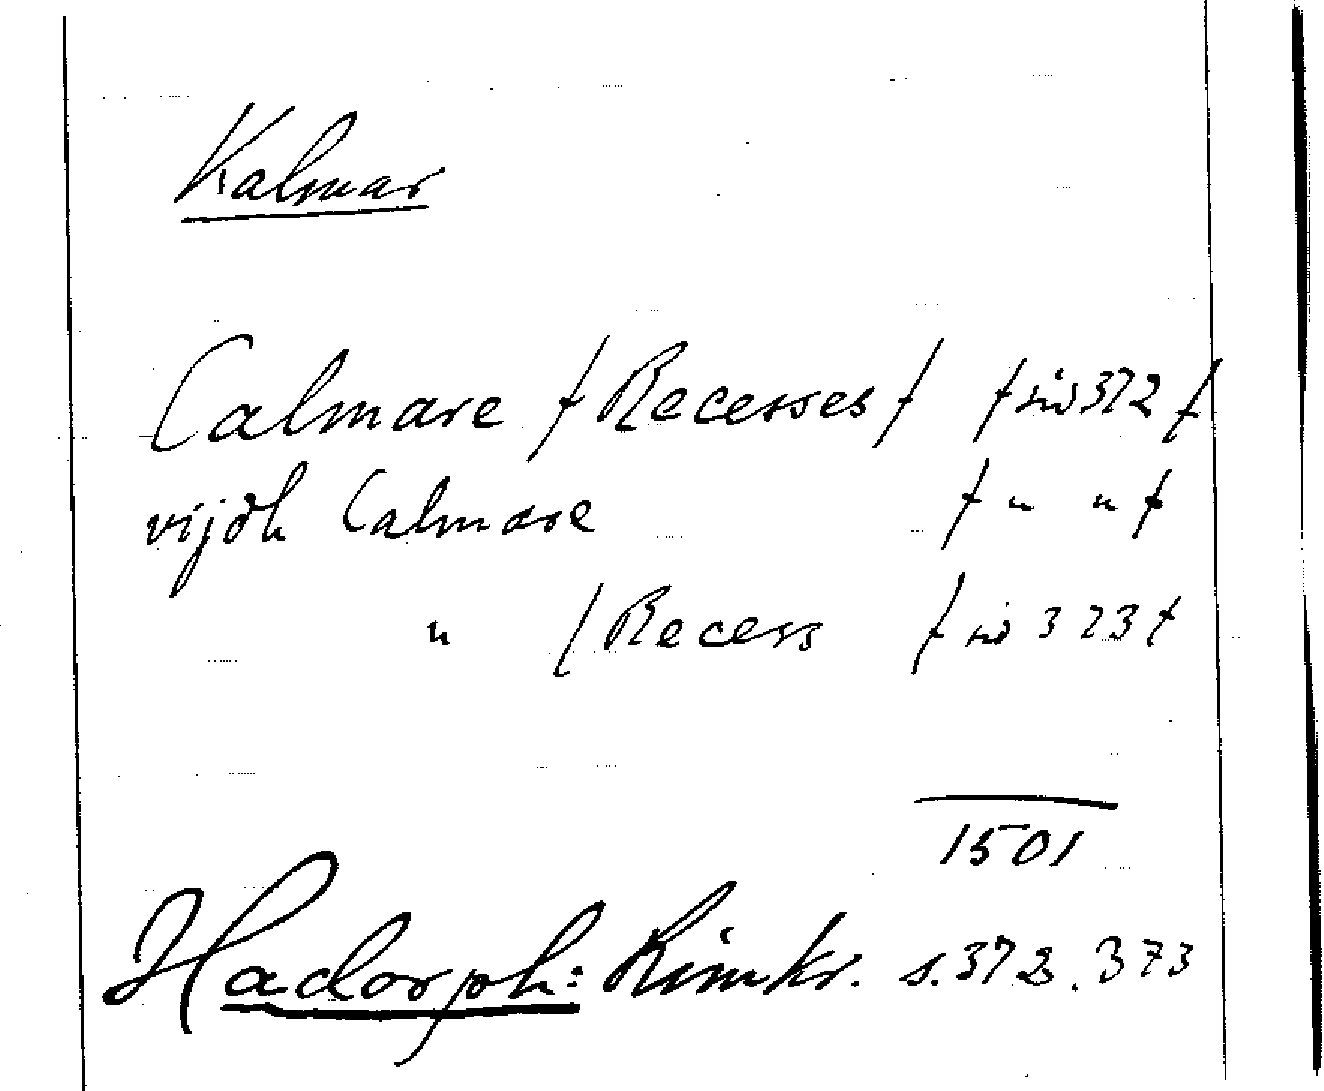 Kalmar
Calmare / Recesses / / sid 372 /
vijdh Calmare / " " /
" / Recess / sid 373 /
1501
Hadorph: Rimkr. s. 372. 373